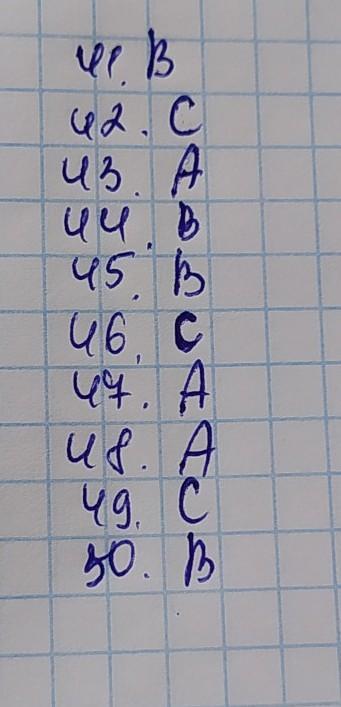 41. B
42. C
43. A
44. B
45. B
46. C
47. A
48. A
49. C
50. B